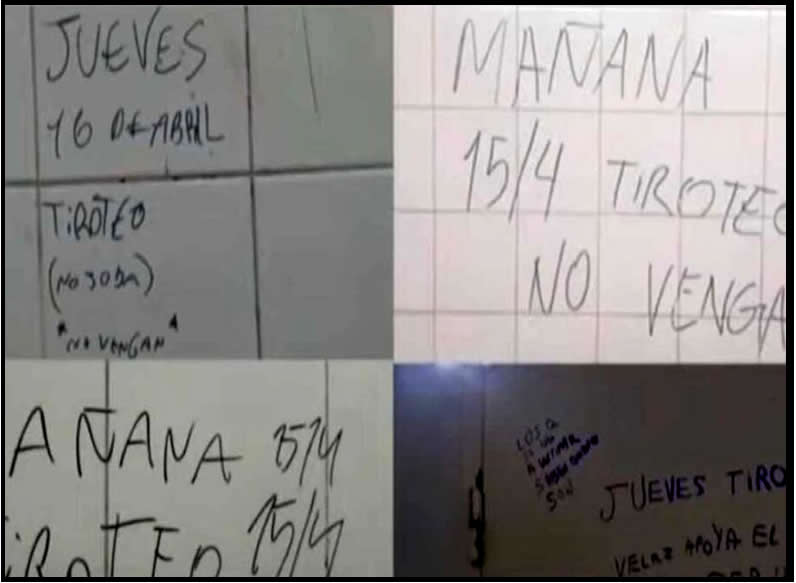 JUEVES
16 DE ABRIL
TIROTEO
(NO JODA)
"NO VENGAN"
MAÑANA
15/4 TIROTEO
NO VENGA
AÑANA 15/4
IROTEO 15/4
LOS Q
SON
JUEVES TIRO
VELAZ APOYA EL